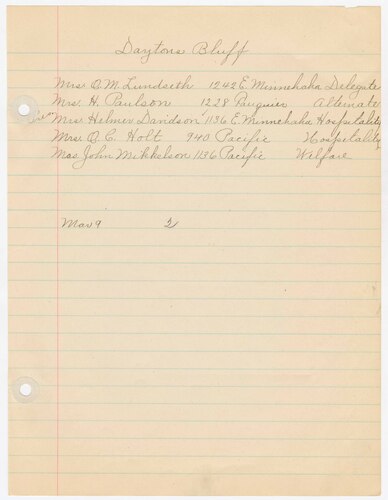 Daytons Bluff
Mrs O. M. Lundseth 1242 E. Minnehaha Delegate
Mrs. H. Paulson 1228 Alternate
Mrs Helmer Davidson 1136 E. Minnehaha Hospitality
Mrs. O. C. Holt 940 Pacific Hospitality
Mrs John Mikkelson 1136 Pacific Welfare
Mar 9 2